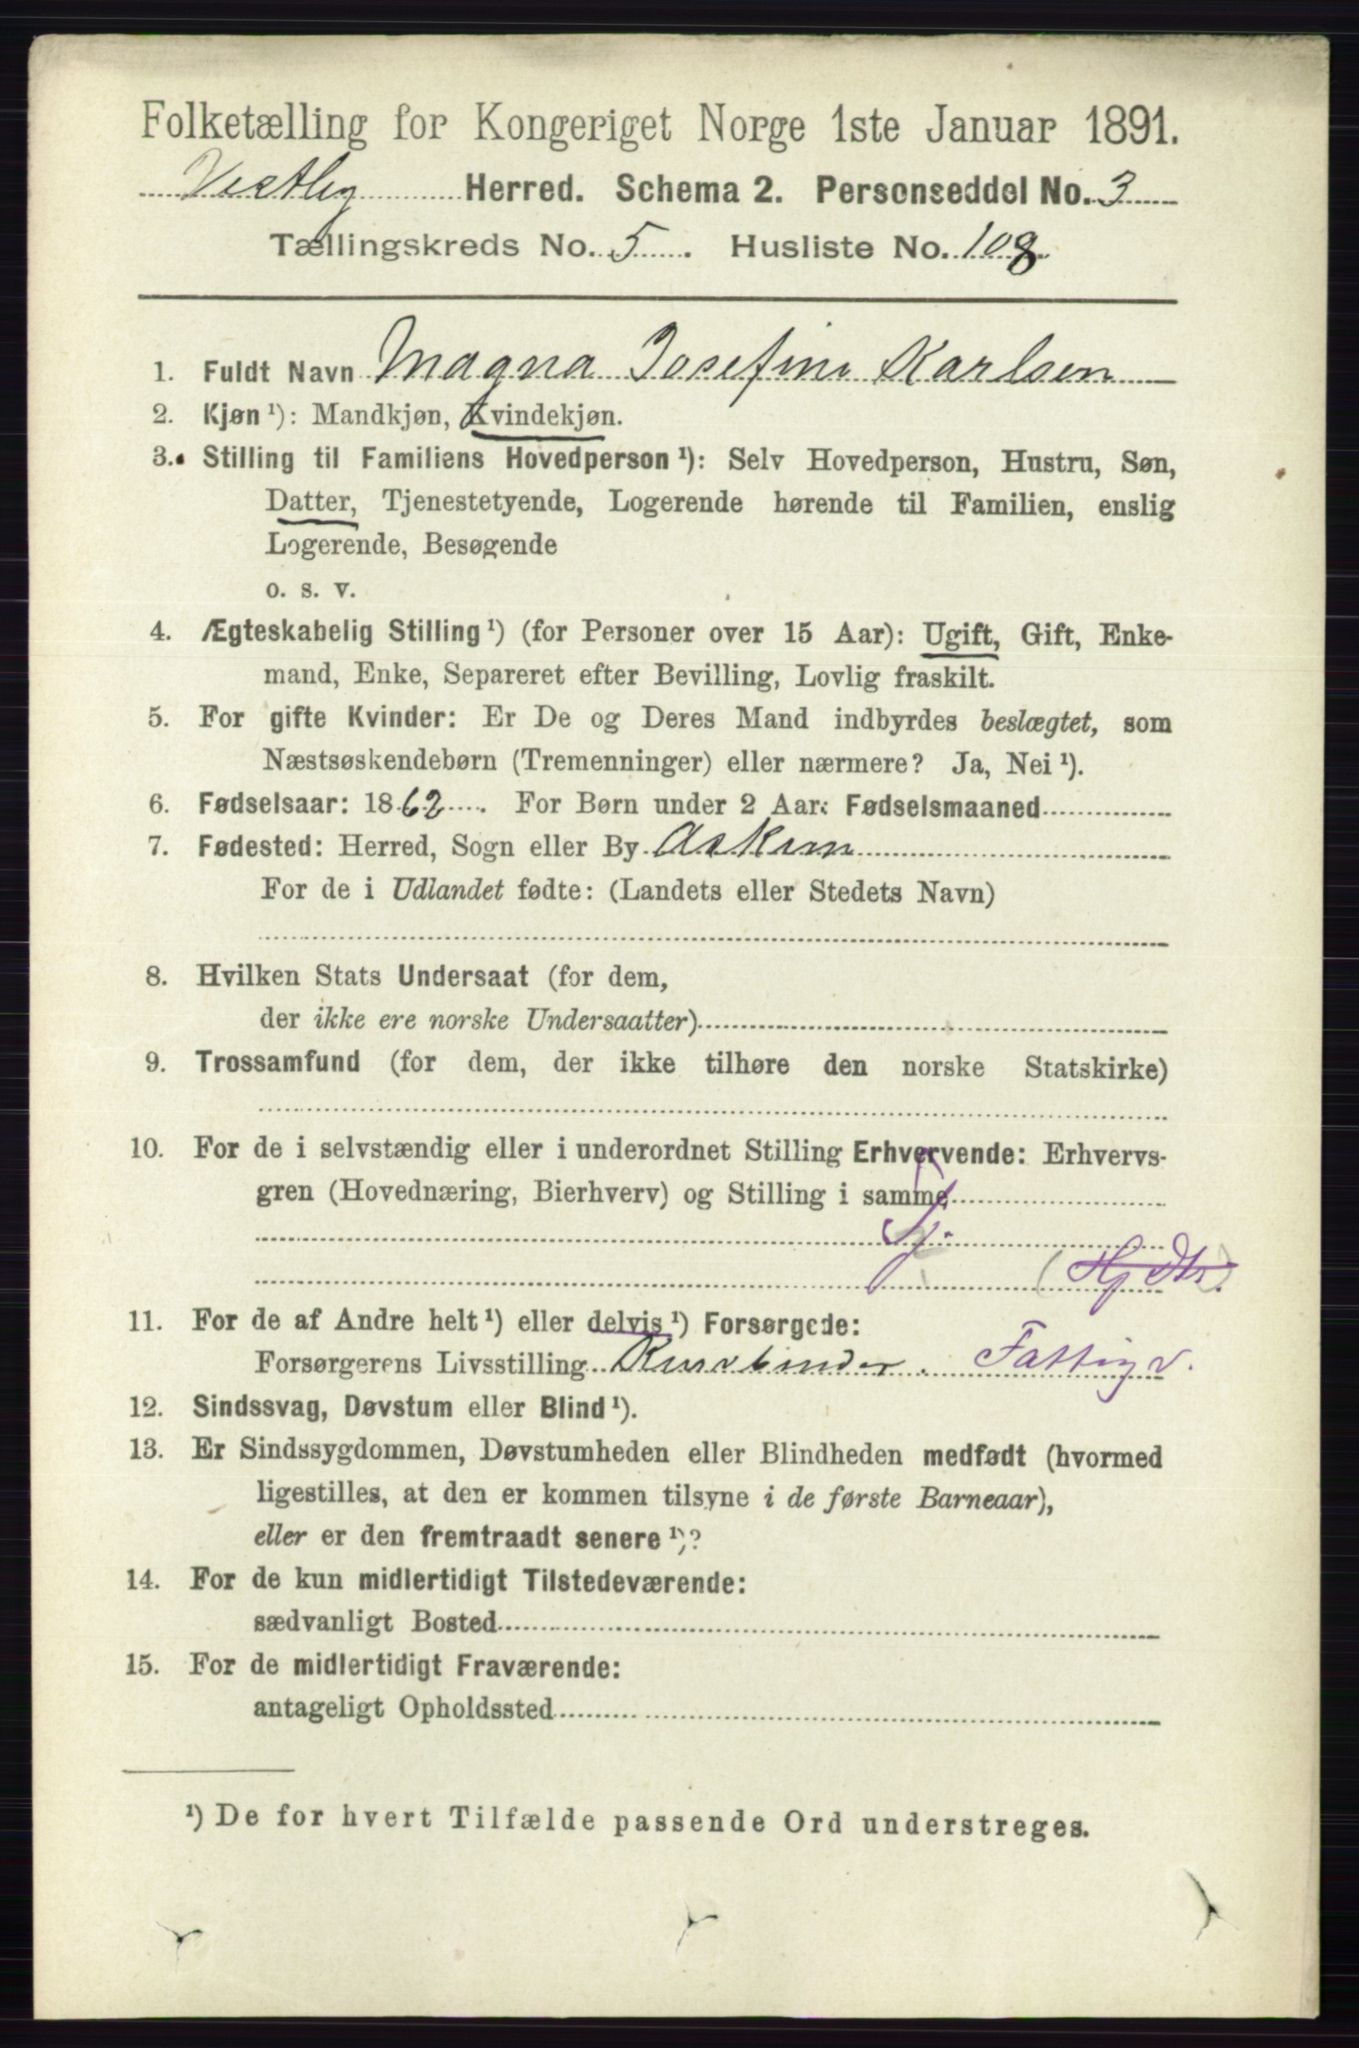 Folketælling for Kongeriget Norge 1ste Januar 1891.
Vestby Herred. Schema 2. Personseddel No. 3
Tællingskreds No. 5. Husliste No. 108.
1. Fuldt Navn Magna Josefine Karlsen
2. Kjøn ¹): Mandkjøn, Kvindekjøn.
3. Stilling til Familiens Hovedperson ¹): Selv Hovedperson, Hustru, Søn,
Datter, Tjenestetyende, Logerende hørende til Familien, enslig
Logerende, Besøgende
o. s. v.
4. Ægteskabelig Stilling ¹) (for Personer over 15 Aar): Ugift, Gift, Enke-
mand, Enke, Separeret efter Bevilling, Lovlig fraskilt.
5. For gifte Kvinder: Er De og Deres Mand indbyrdes beslægtet, som
Næstsøskendebørn (Tremenninger) eller nærmere? Ja, Nei ¹).
6. Fødselsaar: 1862. For Børn under 2 Aar: Fødselsmaaned
7. Fødested: Herred, Sogn eller By Askim
For de i Udlandet fødte: (Landets eller Stedets Navn)
8. Hvilken Stats Undersaat (for dem,
der ikke ere norske Undersaatter)
9. Trossamfund (for dem, der ikke tilhøre den norske Statskirke)
10. For de i selvstændig eller i underordnet Stilling Erhvervende: Erhvervs-
gren (Hovednæring, Bierhverv) og Stilling i samme
(Hj Dtr.)
11. For de af Andre helt ¹) eller delvis ¹) Forsørgede:
Forsørgerens Livsstilling Kurvbinder. Fattigv.
12. Sindssvag, Døvstum eller Blind ¹).
13. Er Sindssygdommen, Døvstumheden eller Blindheden medfødt (hvormed
ligestilles, at den er kommen tilsyne i de første Barneaar),
eller er den fremtraadt senere ¹)?
14. For de kun midlertidigt Tilstedeværende:
sædvanligt Bosted
15. For de midlertidigt Fraværende:
antageligt Opholdssted
¹) De for hvert Tilfælde passende Ord understreges.